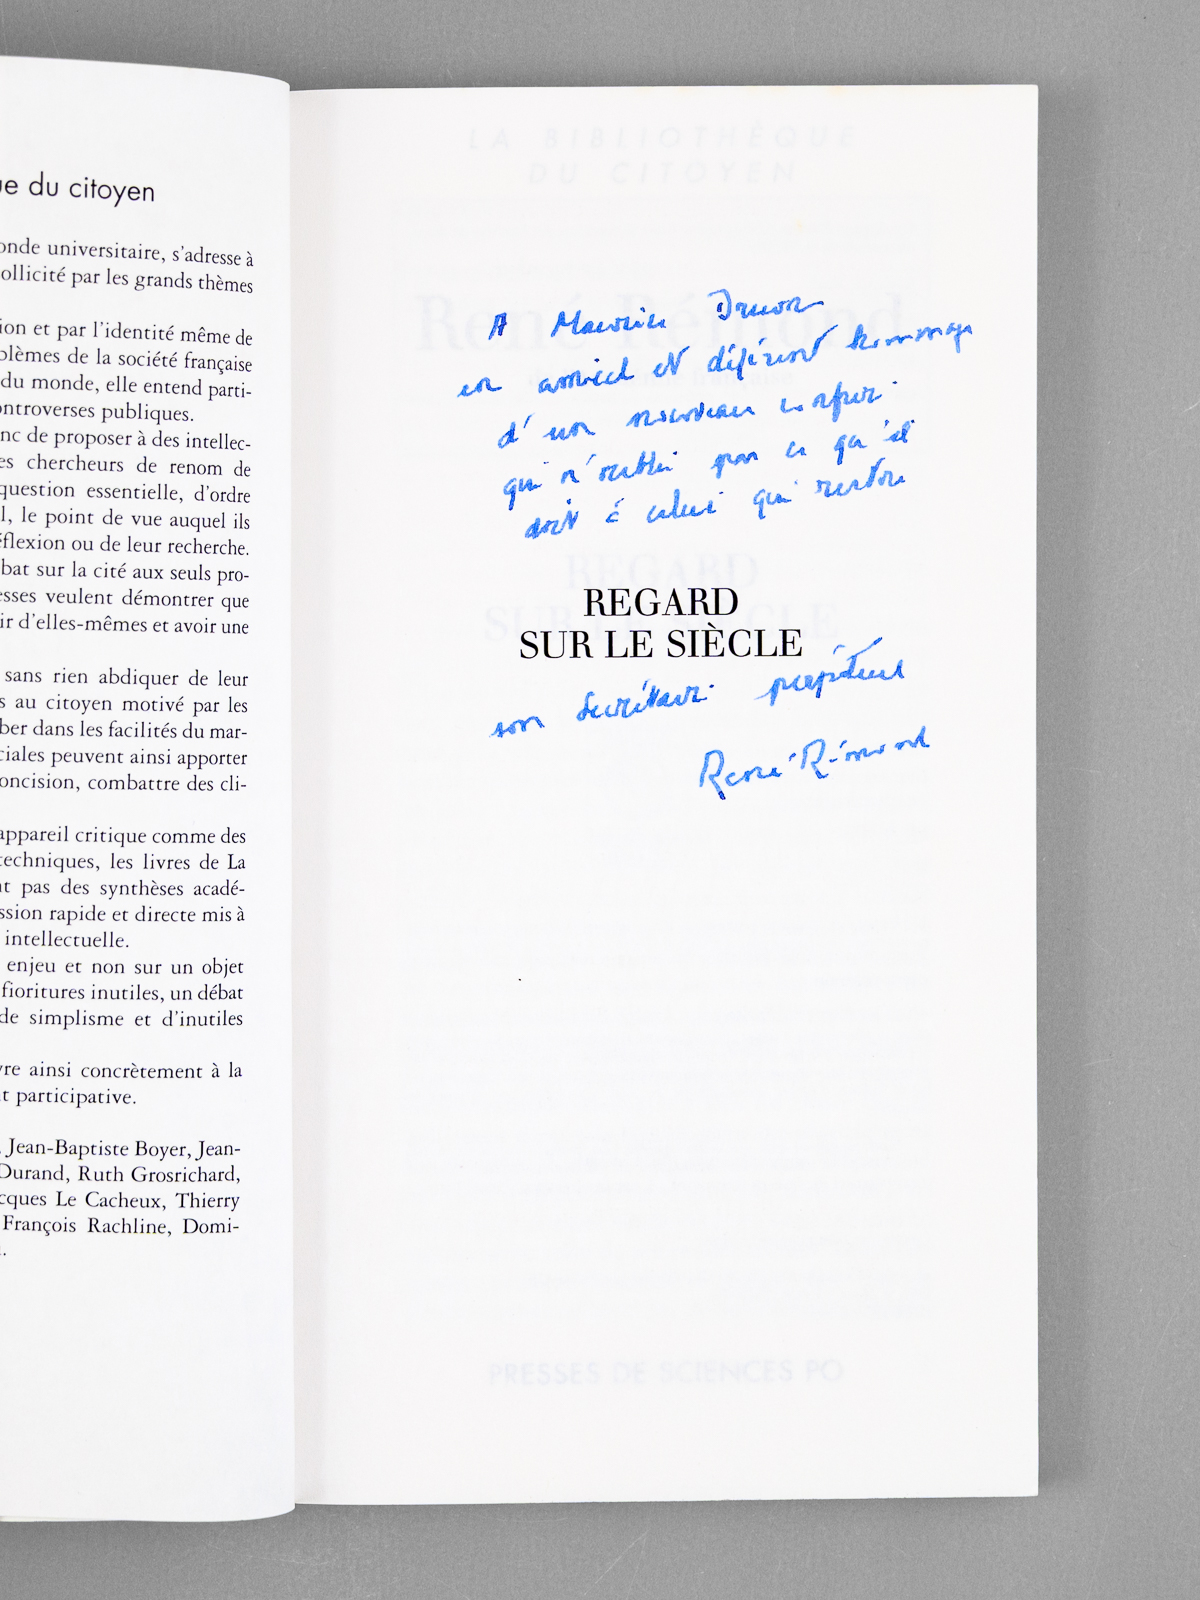 ue du citoyen
onde universitaire, s'adresse à
ollicité par les grands thèmes
ion et par l'identité même de
blèmes de la société française
du monde, elle entend parti-
ontroverses publiques.
nc de proposer à des intellec-
es chercheurs de renom de
question essentielle, d'ordre
l, le point de vue auquel ils
éflexion ou de leur recherche.
bat sur la cité aux seuls pro-
esses veulent démontrer que
ir d'elles-mêmes et avoir une
sans rien abdiquer de leur
s au citoyen motivé par les
ber dans les facilités du mar-
ciales peuvent ainsi apporter
oncision, combattre des cli-
appareil critique comme des
techniques, les livres de La
nt pas des synthèses acadé-
ssion rapide et directe mis à
intellectuelle.
enjeu et non sur un objet
fioritures inutiles, un débat
de simplisme et d'inutiles
vre ainsi concrètement à la
t participative.
, Jean-Baptiste Boyer, Jean-
Durand, Ruth Grosrichard,
cques Le Cacheux, Thierry
François Rachline, Domi-
LA BIBLIOTHÈQUE
DU CITOYEN
René Rémond
A Maurice Druon
en amical et déférent hommage
d'un nouveau confrère
qui n'oublie pas ce qu'il
doit à celui qui restera
REGARD
SUR LE SIÈCLE
son Secrétaire perpétuel
René Rémond
PRESSES DE SCIENCES PO